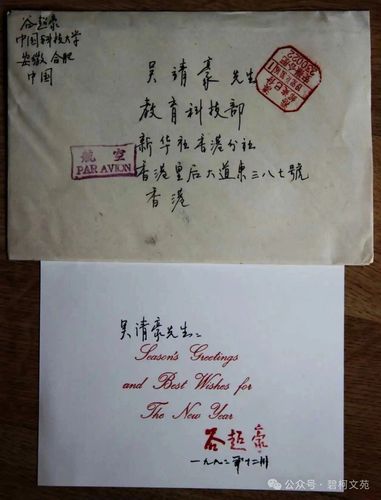 谷超豪
中国科技大学
安徽 合肥
中国
吴靖豪 先生
教育科技部
新华社香港分社
香港皇后大道東三八七號
香港
航空
PAR AVION
吴清豪先生:
Season's Greetings
and Best Wishes for
The New Year
谷超豪
一九九二年十二月
公众号·碧柯文苑